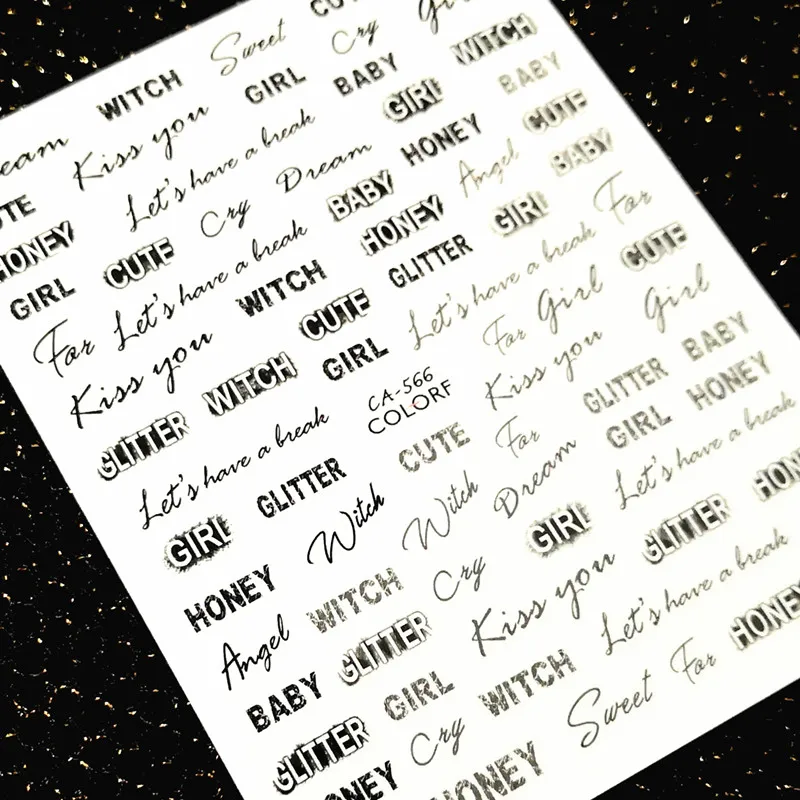 CU
WITCH Sweet Cry Girl
eam Kiss you GIRL BABY WITCH
UTE Let's have a break GIRL BABY
HONEY CUTE Cry Dream HONEY CUTE
GIRL BABY Angel BABY
For Let's have a break HONEY GIRL For
Kiss you WITCH GLITTER CUTE
CUTE Let's have a break
GLITTER WITCH GIRL For Girl Girl
CA-566
COLORF
Let's have a break Kiss you BABY
GLITTER CUTE For GLITTER HONEY
GIRL Witch Witch Dream GIRL
HONEY WITCH Cry GIRL Let's have a break
Angel GLITTER Kiss you GLITTER HON
BABY GIRL WITCH Let's have a break
GLITTER Cry Sweet For HONEY
ONEY HONEY